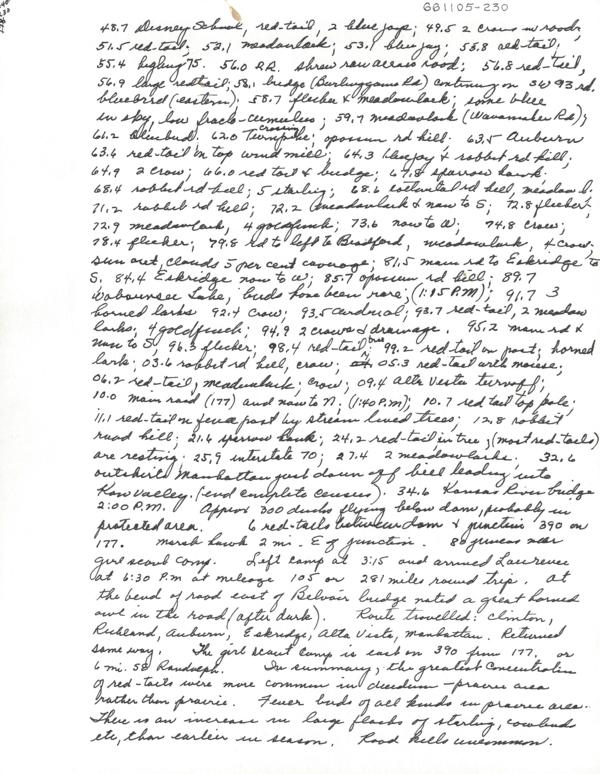 661105-230
48.7 Disney School, red-tail, 2 blue jays; 49.5 2 crows in woods,
51.5 red-tail; 52.1 meadowlark; 53.1 blue jay; 53.8 red-tail;
55.4 highway 75. 56.0 R.R. shrew ran across road; 56.8 red-tail,
56.9 large redtail; 58.1 bridge (Burlingame Rd) continuing on SW 93 rd.
bluebird (eastern). 58.7 flicker & meadowlark; some blue
in sky, low fracto-cumulus; 59.7 meadowlark (Wanamaker Rd);
61.2 bluebird. 62.0 Turnpike crossing; opossum rd kill. 63.5 Auburn
63.6 red-tail on top wind mill; 64.3 blue jay & rabbit rd kill;
64.9 2 crow; 66.0 red tail & bridge; 67.8 sparrow hawk.
68.4 rabbit rd kill; 5 starling; 68.6 cottontail rd kill, meadow l.
71.2 rabbit rd kill; 72.2 meadowlark & now to S; 72.8 flicker,
72.9 meadowlark, 4 goldfinch; 73.6 now to W; 74.8 crow;
78.4 flicker; 79.8 rd to left to Bradford, meadowlark, 4 crow;
sun out, clouds 5 per cent coverage; 81.5 main rd to Eskridge to
S. 84.4 Eskridge now to W; 85.7 opossum rd kill; 89.7
Wabaunsee Lake, birds have been rare, (1:15 P.M.); 91.7 3
horned larks 92.4 crow; 93.5 cardinal; 93.7 red-tail, 2 meadow
larks; 4 goldfinch; 94.9 2 crows & drainage. 95.2 main rd &
now to S, 96.3 flicker; 98.4 red-tail in tree; 99.2 red-tail on post; horned
lark; 03.6 rabbit rd kill, crow; 05.3 red-tail with mouse;
06.2 red-tail; meadowlark; crow; 09.4 Alta Vista turnoff;
10.0 main road (177) and now to N. (1:40 P.M.); 10.7 red tail top pole;
11.1 red-tail on fence post by stream lined trees; 12.8 rabbit
road kill; 21.6 sparrow hawk; 24.2 red-tail in tree; (most red-tails)
are resting; 25.9 interstate 70; 27.4 2 meadowlarks. 32.6
outskirts Manhattan just down off hill leading into
Kaw Valley. (end complete census). 34.6 Kansas River bridge
2:00 P.M. Approx 300 ducks flying below dam, probably in
protected area. 6 red-tails between dam & junction 390 on
177. marsh hawk 2 mi. E of junction. 80 juncos near
girl scout camp. Left camp at 3:15 and arrived Lawrence
at 6:30 P.M at mileage 105 or 281 miles round trip. At
the bend of road east of Belvoir bridge noted a great horned
owl in the road (after dark). Route travelled: Clinton,
Richland, Auburn, Eskridge, Alta Vista, Manhattan. Returned
same way. The girl scout camp is east on 390 from 177, or
6 mi. SE Randolph. In summary, the greatest concentration
of red-tails were more common in deciduous-prairie area
rather than prairie. Fewer birds of all kinds in prairie area.
There is an increase in large flocks of starling, cowbird
etc, than earlier in season. Road kills uncommon.